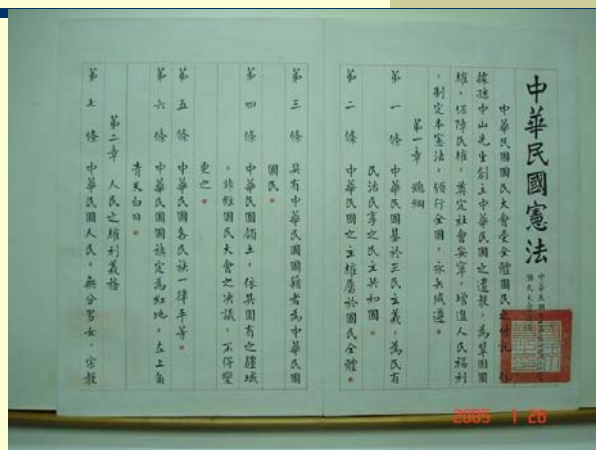 中華民國憲法
中華民國國民大會受全體國民之付託,依
據孫中山先生創立中華民國之遺教,為鞏固國
權,保障民權,奠定社會安寧,增進人民福利
,制定本憲法,頒行全國,永矢咸遵。
第一章 總綱
第一條 中華民國基於三民主義,為民有
民治民享之民主共和國。
第二條 中華民國之主權屬於國民全體。
第三條 具有中華民國國籍者為中華民國
國民。
第四條 中華民國領土,依其固有之疆域
,非經國民大會之決議,不得變
更之。
第五條 中華民國各民族一律平等。
第六條 中華民國國旗定為紅地,左上角
青天白日。
第二章 人民之權利義務
第七條 中華民國人民,無分男女,宗教
2005 1